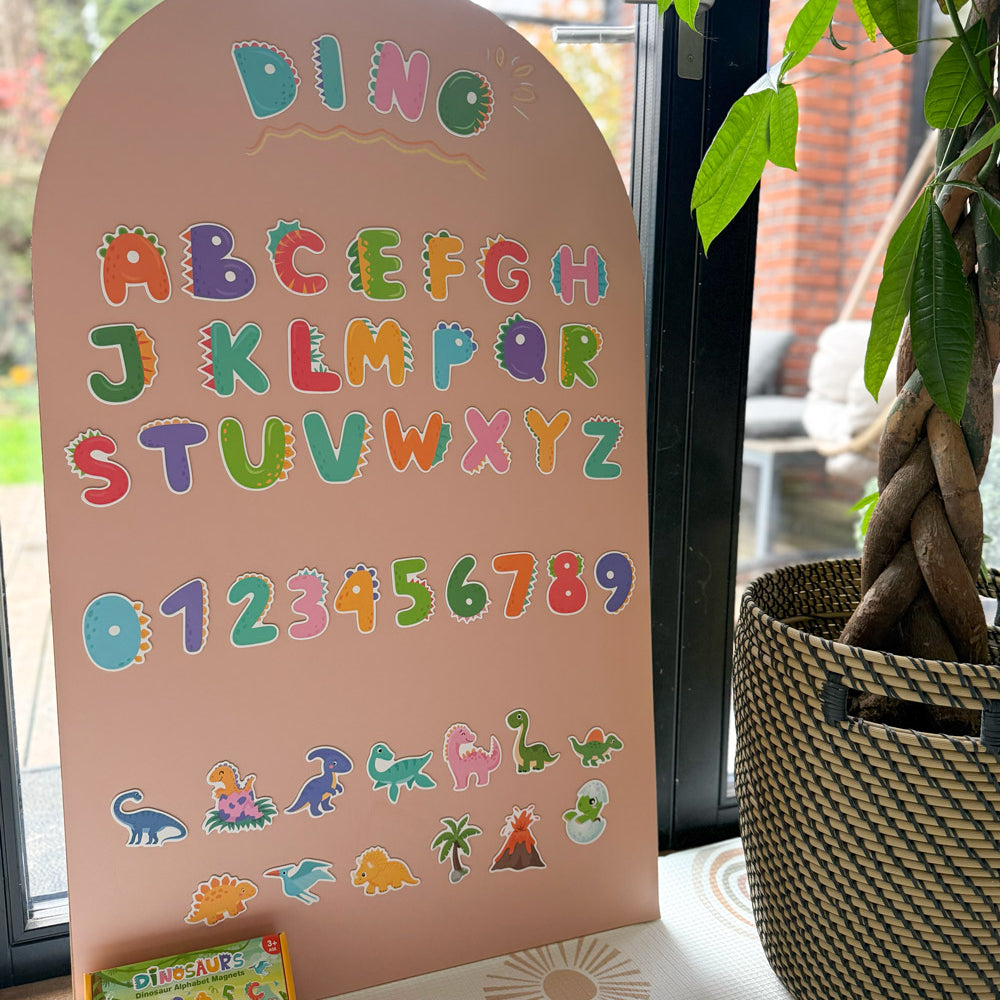 DINO
ABCEFGH
JKLMPQR
STUVWXYZ
0123456789
3+
AGE
DINOSAURS
Dinosaur Alphabet Magnets